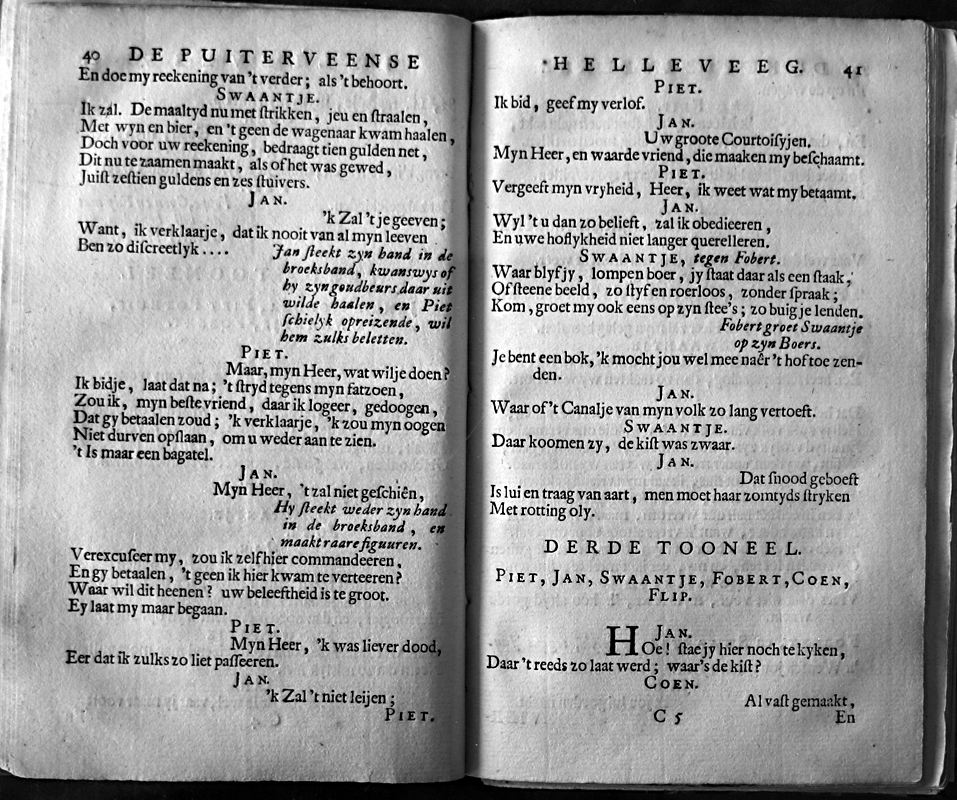 40 DE PUITERVEENSE
En doe my reekening van 't verder; als 't behoort.
SWAANTJE.
Ik zal. De maaltyd nu met ſtrikken, jeu en ſtraalen,
Met wyn en bier, en 't geen de wagenaar kwam haalen,
Doch voor uw reekening, bedraagt tien gulden net,
Dit nu te zaamen maakt, als of het was gewed,
Juiſt zeſtien guldens en zes ſtuivers.
JAN.
'k Zal 't je geeven;
Want, ik verklaarje, dat ik nooit van al myn leeven
Ben zo diſcreetlyk . . . . Jan ſteekt zyn hand in de
broeksband, kwanswys of
hy zyn goudbeurs daar uit
wilde haalen, en Piet
ſchielyk opreizende, wil
hem zulks beletten.
PIET.
Maar, myn Heer, wat wil je doen?
Ik bidje, laat dat na; 't ſtryd tegens myn fatzoen,
Zou ik, myn beſte vriend, daar ik logeer, gedoogen,
Dat gy betaalen zoud; 'k verklaarje, 'k zou myn oogen
Niet durven opſlaan, om u weder aan te zien.
't Is maar een bagatel.
JAN.
Myn Heer, 't zal niet geſchiên,
Hy ſteekt weder zyn hand
in de broeksband, en
maakt raare figuuren.
Verexcuſeer my, zou ik zelf hier commandeeren,
En gy betaalen, 't geen ik hier kwam te verteeren?
Waar wil dit heenen? uw beleeftheid is te groot.
Ey laat my maar begaan.
PIET.
Myn Heer, 'k was liever dood,
Eer dat ik zulks zo liet paſſeeren.
JAN.
'k Zal 't niet leijen;
PIET.
HELLEVEEG. 41
PIET.
Ik bid, geef my verlof.
JAN.
Uw groote Courtoiſyjen.
Myn Heer, en waarde vriend, die maaken my beſchaamt.
PIET.
Vergeeft myn vryheid, Heer, ik weet wat my betaamt.
JAN.
Wyl 't u dan zo belieft, zal ik obedieeren,
En uwe hoflykheid niet langer querelleren.
SWAANTJE, tegen Fobert.
Waar blyf jy, lompen boer, jy ſtaat daar als een ſtaak,
Of ſteene beeld, zo ſtyf en roerloos, zonder ſpraak;
Kom, groet my ook eens op zyn ſtee's; zo buig je lenden.
Fobert groet Swaantje
op zyn Boers.
Je bent een bok, 'k mocht jou wel mee naêr 't hof toe zen-
den.
JAN.
Waar of 't Canalje van myn volk zo lang vertoeft.
SWAANTJE.
Daar koomen zy, de kiſt was zwaar.
JAN.
Dat ſnood geboeft
Is lui en traag van aart, men moet haar zomtyds ſtryken
Met rotting oly.
DERDE TOONEEL.
PIET, JAN, SWAANTJE, FOBERT, COEN,
FLIP.
JAN.
HOe! ſtae jy hier noch te kyken,
Daar 't reeds zo laat werd; waar's de kiſt?
COEN.
Al vaſt gemaakt,
C 5 En